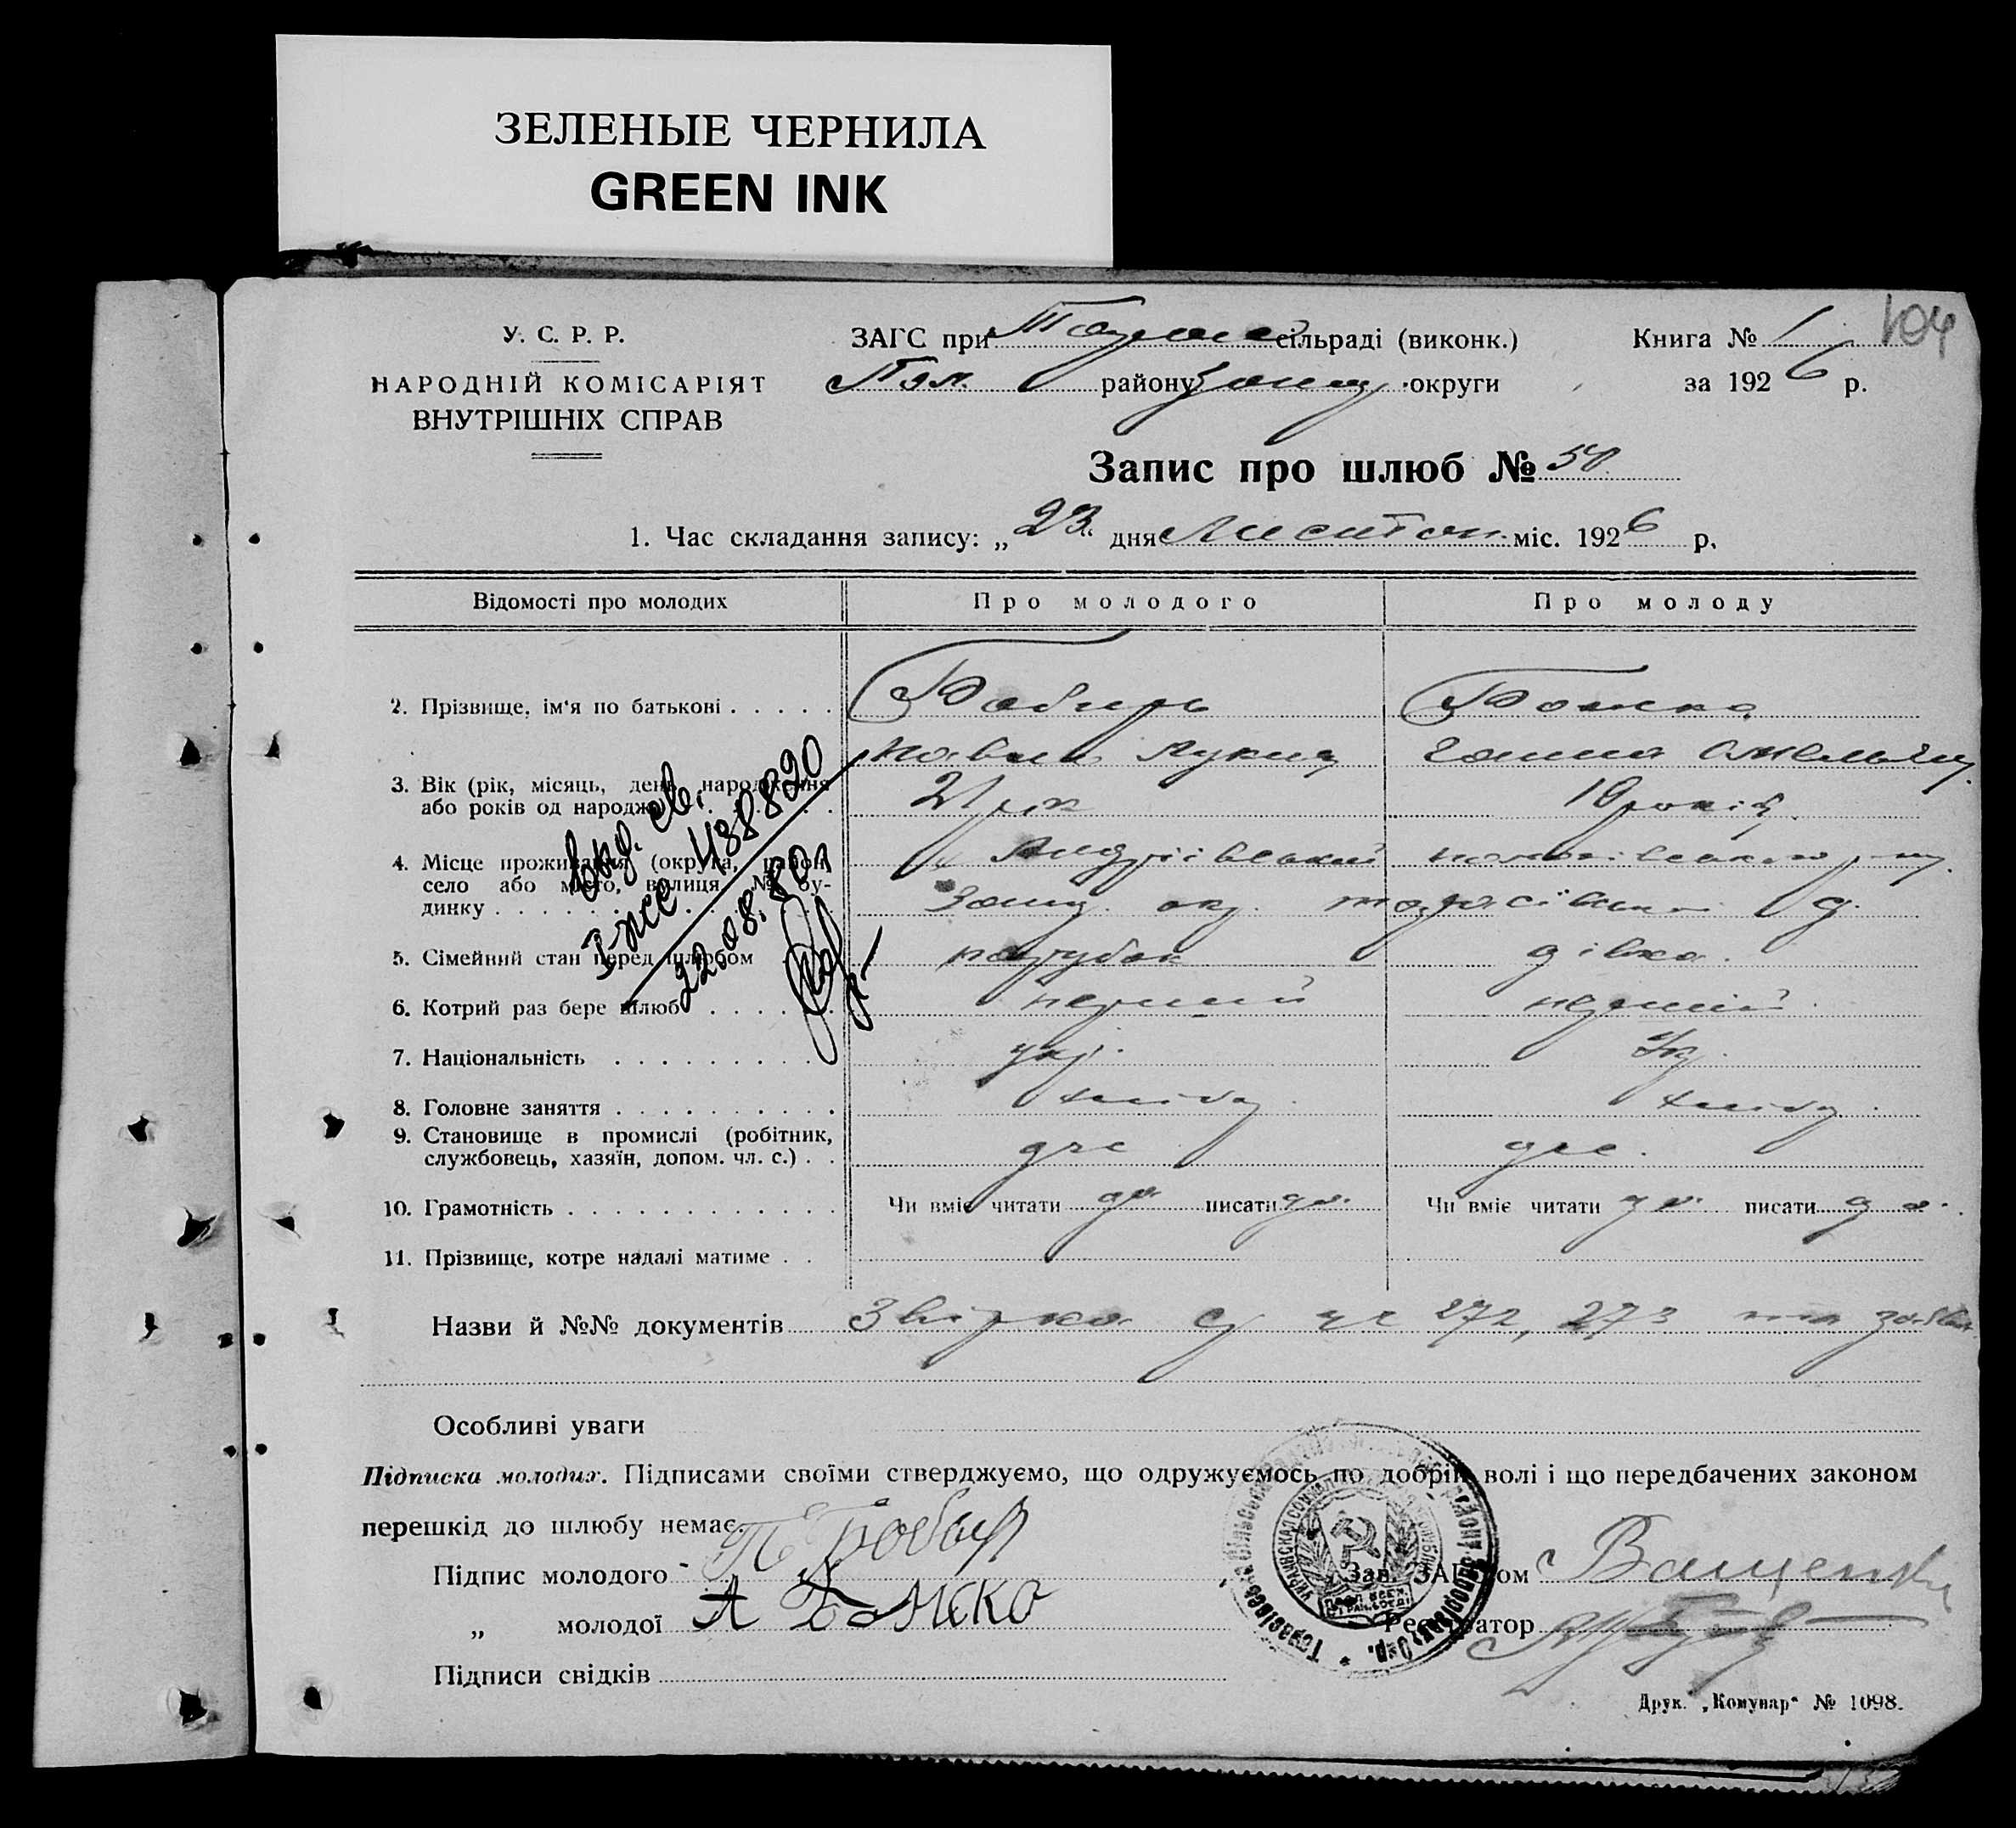 ЗЕЛЕНЫЕ ЧЕРНИЛА
GREEN INK
104
У. С. Р. Р.
НАРОДНІЙ КОМІСАРІЯТ
ВНУТРІШНІХ СПРАВ
ЗАГС при сільраді (виконк.)
Пол. району Запор. округи
Книга № 1
за 1926 р.
Запис про шлюб № 50
1. Час складання запису: „23" дня Листоп. міс. 1926 р.
Відомості про молодих
Про молодого
Про молоду
2. Прізвище, ім'я по батькові . . . . . Бабирь Божко
Павло Лукич Ганна Омельян.
3. Вік (рік, місяць, день народження
або років од народж. 21 рік років
4. Місце проживання (округа, район,
село або місто, вулиця, № бу-
динку . . . Андріівський пологівського р-ну
Запор. окр. тарасівської
5. Сімейний стан перед шлюбом парубок дівка.
6. Котрий раз бере шлюб . . . . . перший перший
7. Національність . . . . . . . . укр. Укр.
8. Головне заняття . . . . . . . . . . хлібор. хлібор.
9. Становище в промислі (робітник,
службовець, хазяїн, допом. чл. с.) . . дчс дчс.
10. Грамотність . . . . . . . . . . . . . Чи вміє читати да писати да. Чи вміє читати да. писати да.
11. Прізвище, котре надалі матиме . .
выд. св.
438820
22.08.80г
Назви й №№ документів 272, 273 та заяви
Особливі уваги
Підписка молодих. Підписами своїми стверджуємо, що одружуємось по добрій волі і що передбачених законом
перешкід до шлюбу немає.
Підпис молодого
„ молодої А Божко
Підписи свідків
Зав. ЗАГ'ом Ващенко
Реєстратор
Друк. „Комунар" № 1098.